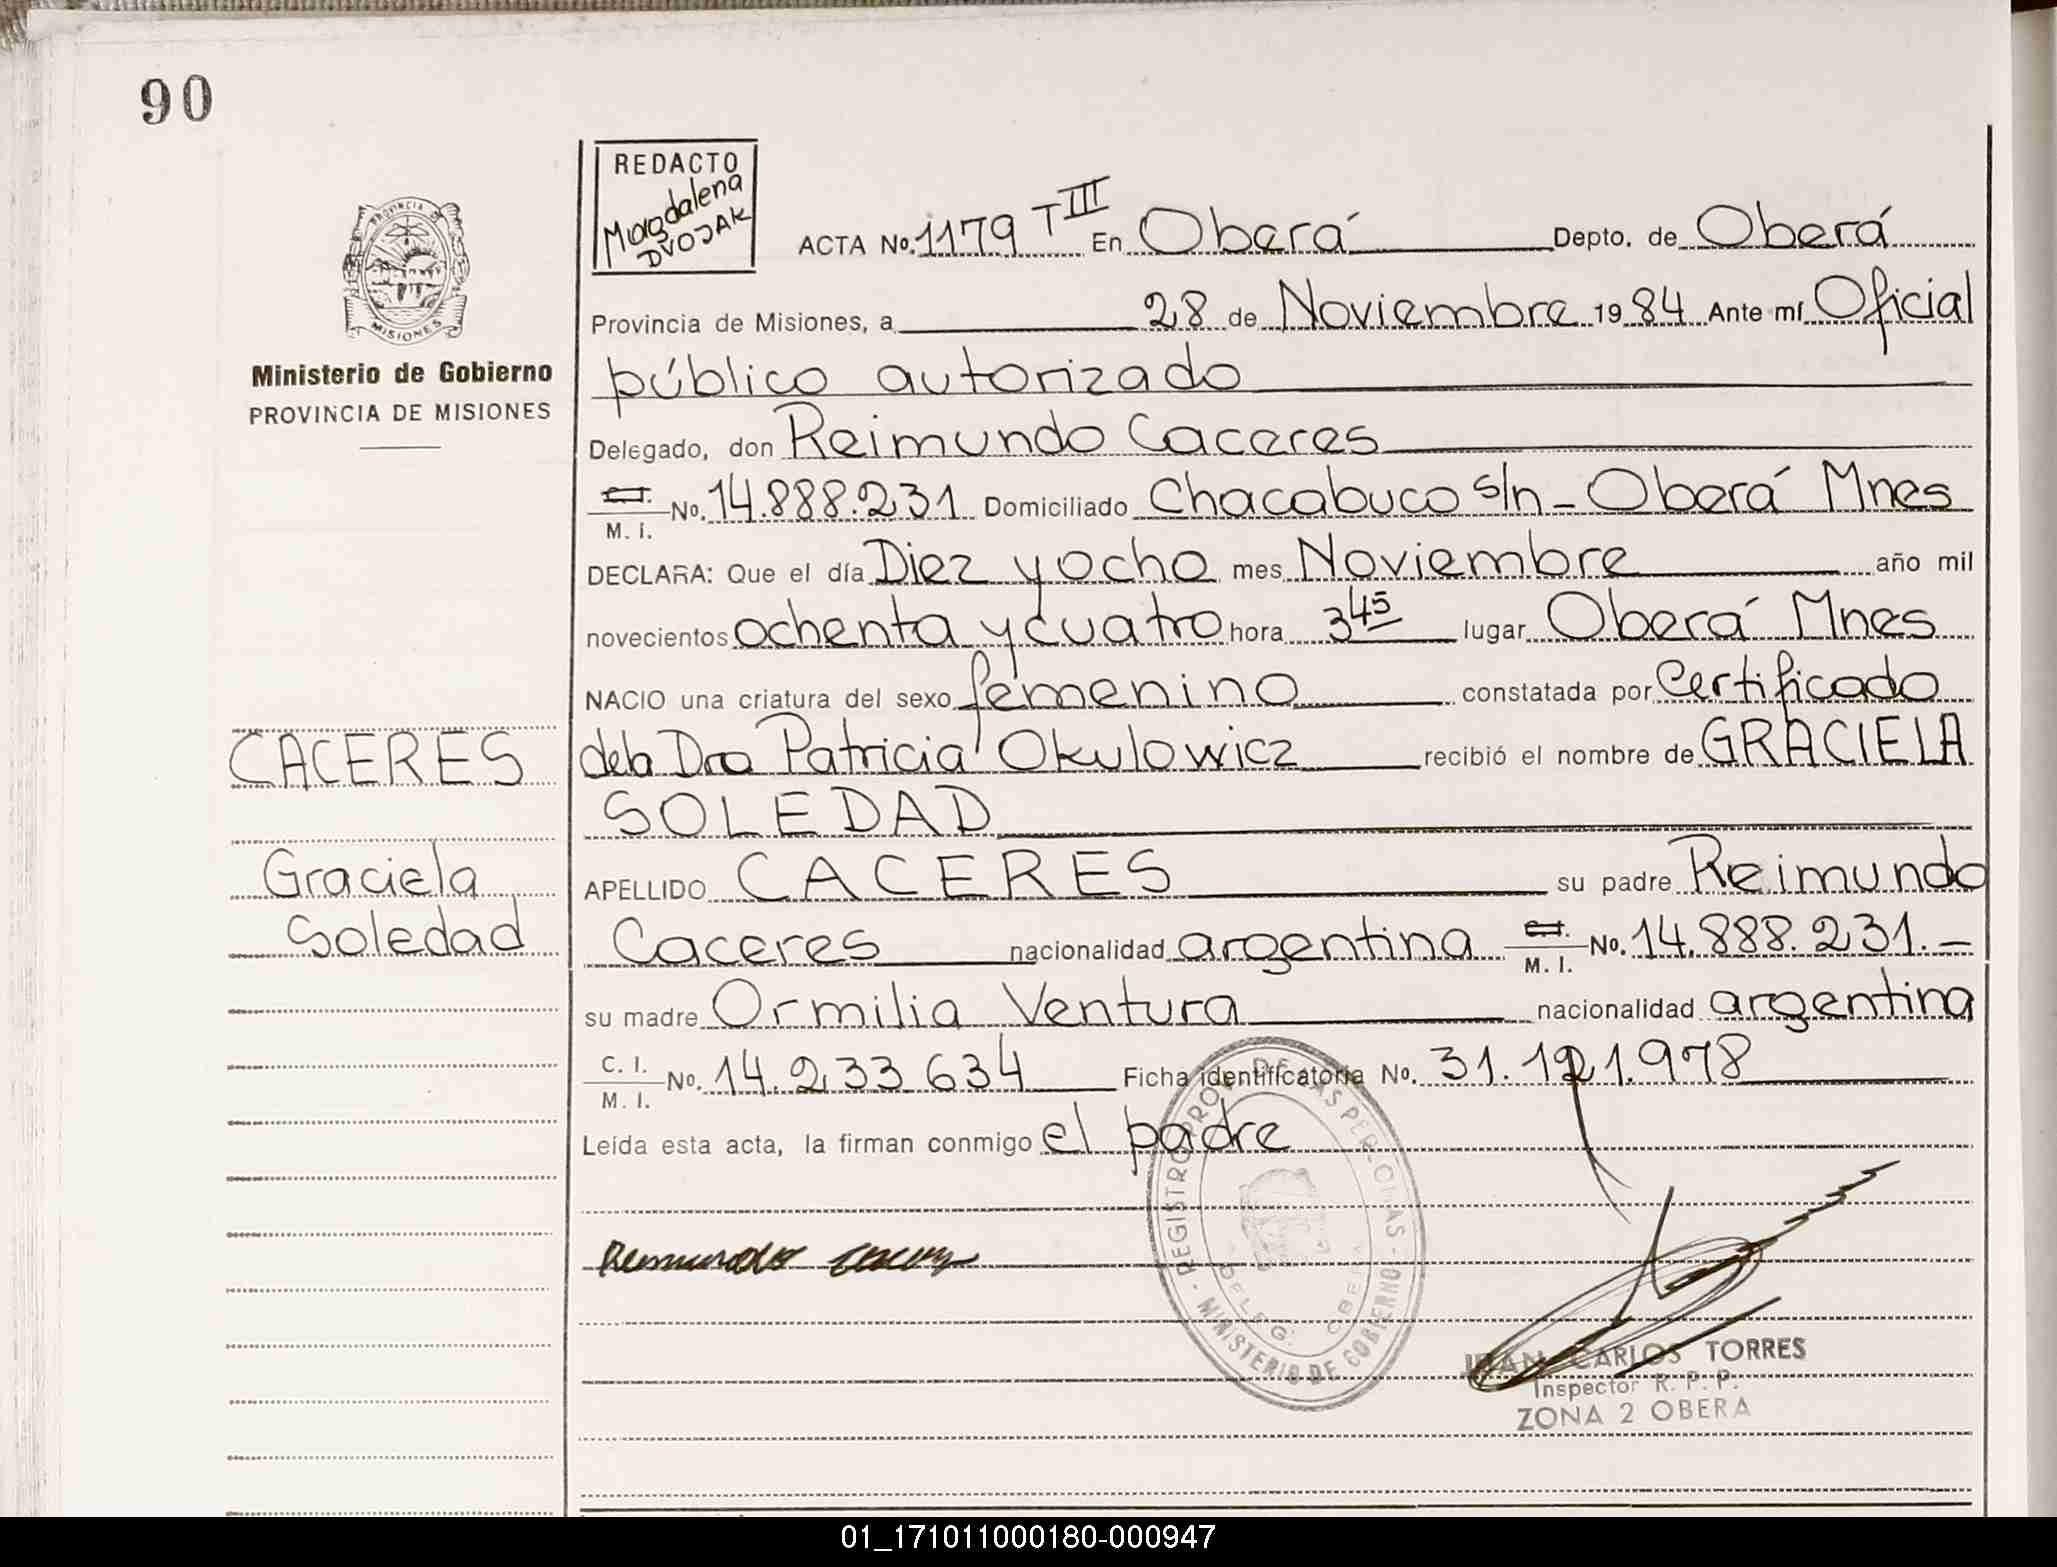 90
REDACTO
Magdalena
DVOJAK
PROVINCIA DE
MISIONES
Ministerio de Gobierno
PROVINCIA DE MISIONES
ACTA No. 1179 T III En Oberá Depto. de Oberá
Provincia de Misiones, a 28 de Noviembre 19 84 Ante mí Oficial
público autorizado
Delegado, don Reimundo Caceres
C.I.
M. I. No. 14.888.231 Domiciliado Chacabuco s/n - Oberá Mnes
DECLARA: Que el día Diez y ocho mes Noviembre año mil
novecientos ochenta y cuatro hora 3 45 lugar Oberá Mnes
NACIO una criatura del sexo femenino constatada por Certificado
CACERES
de la Dra Patricia Okulowicz recibió el nombre de GRACIELA
SOLEDAD
Graciela
APELLIDO CACERES su padre Reimundo
Soledad
Caceres nacionalidad argentina C.I.
M. I. No. 14.888.231.-
su madre Ormilia Ventura nacionalidad argentina
C. I.
M. I. No. 14.233.634 Ficha identificatoria No. 31.121.978
Leída esta acta, la firman conmigo el padre
Reimundo Caceres
REGISTRO PROV. DE LAS PERSONAS - MINISTERIO DE GOBIERNO
DELEG. OBERA
JUAN CARLOS TORRES
Inspector R. P. P.
ZONA 2 OBERA
01_171011000180-000947